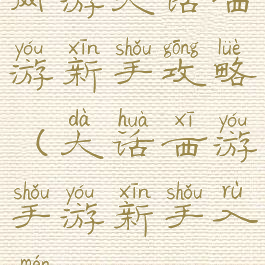 游大话西
yóu xīn shǒu gōng lüè
游新手攻略
dà huà xī yóu
（大话西游
shǒu yóu xīn shǒu rù
手游新手入
mén